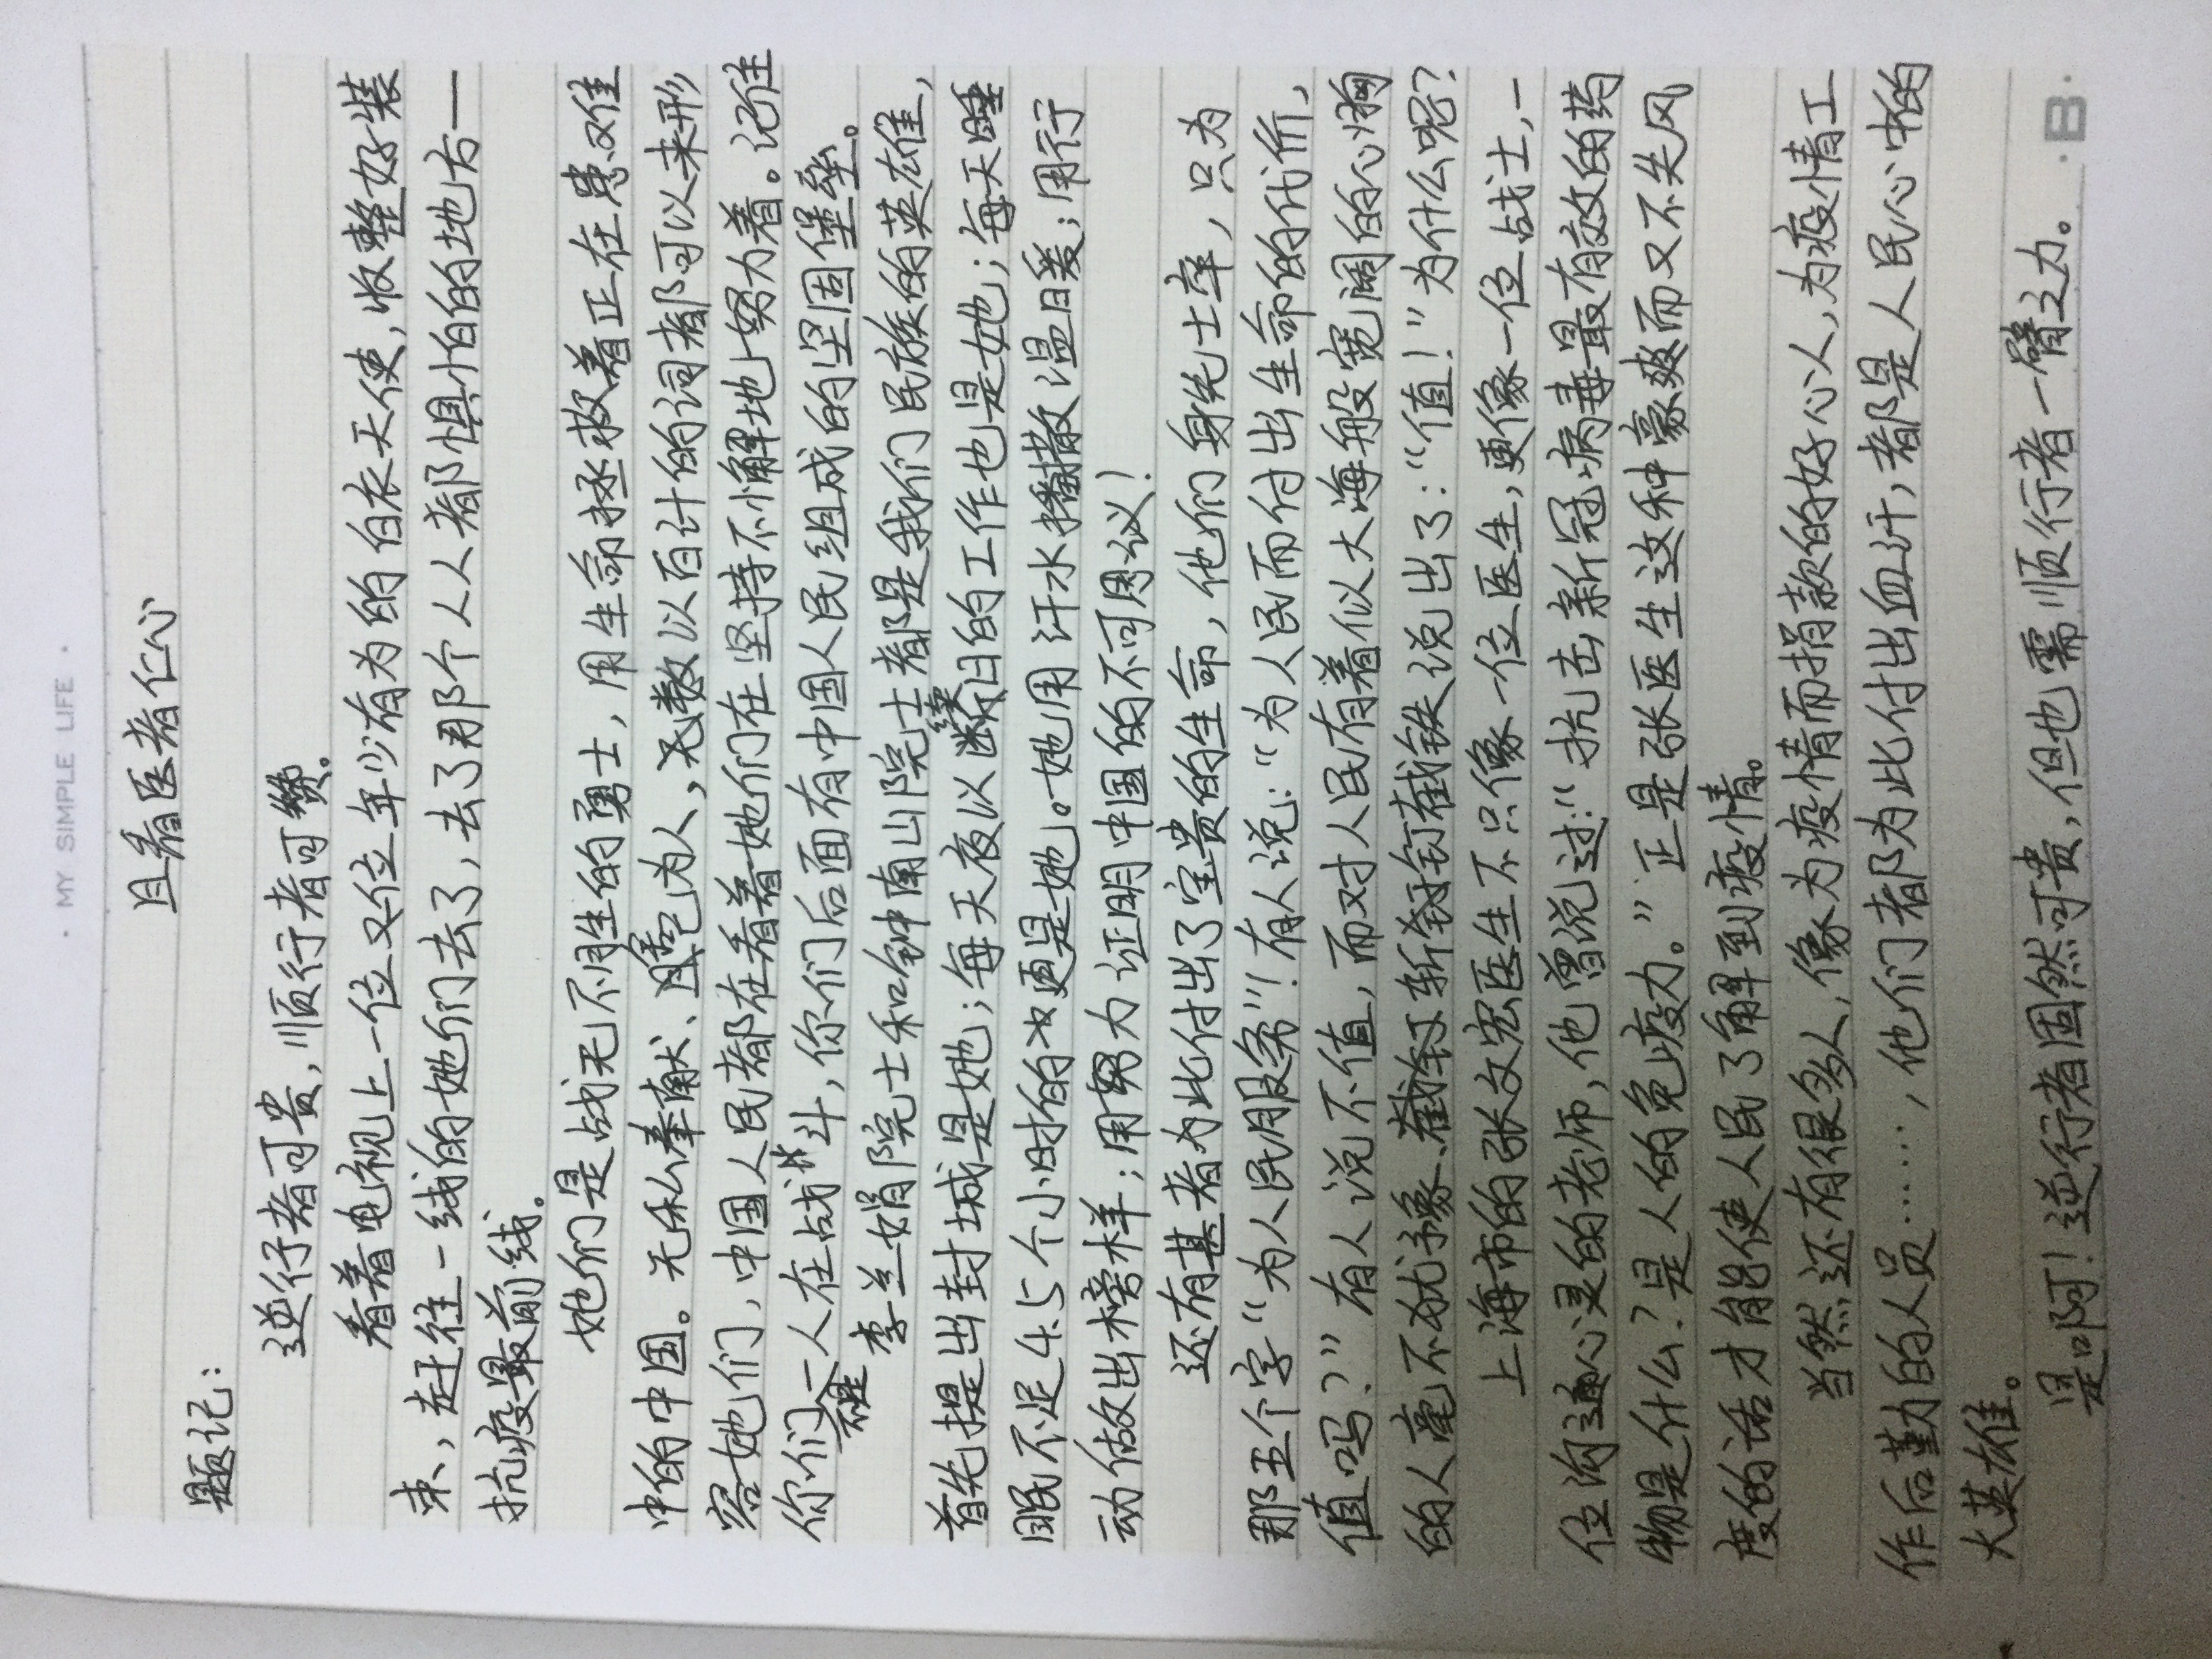 · MY SIMPLE LIFE ·
且看医者仁心
题记：
逆行者可贵，顺行者可赞。
看着电视上一位又位年少有为的白衣天使，收整好装
束、赶往一线的她们去了，去了那个人人都惧怕的地方一
抗疫最前线。
她们是战无不胜的勇士，用生命拯救着正在患难
中的中国。无私奉献、舍己为人，无数以百计的词都可以来形
容她们，中国人民都在看着她们在坚持不懈地努力着。记住
你们一人在战斗，你们后面有中国人民组成的坚固堡垒。
李兰娟院士和钟南山院士都是我们民族的英雄，
首先提出封城是她；每天夜以继日的工作也是她；每天睡
眠不足4.5个小时的更是她。她用汗水播散温暖；用行
动做出榜样；用努力证明中国的不可思议！
还有甚者为此付出了宝贵的生命，他们身先士卒，只为
那五个字“为人民服务”！有人说：“为人民而付出生命的代价，
值吗？”有人说不值，而对人民有着似大海般宽阔的心胸
的人毫不犹豫、斩钉截铁说出了：“值！”为什么呢？
上海市的张文宏医生不只像一位医生，更像一位战士，一
位沟通心灵的老师，他曾说过：“抗击新冠病毒最有效的药
物是什么？是人的免疫力。”正是张医生这种豪爽而又不失风
度的话才能使人民了解到疫情。
当然还有很多人，像为疫情而捐款的好心人，为疫情工
作后勤的人员……，他们都为此付出血汗，都是人民心中的
大英雄。
是啊！逆行者固然可贵，但也需顺行者一臂之力。
·B·